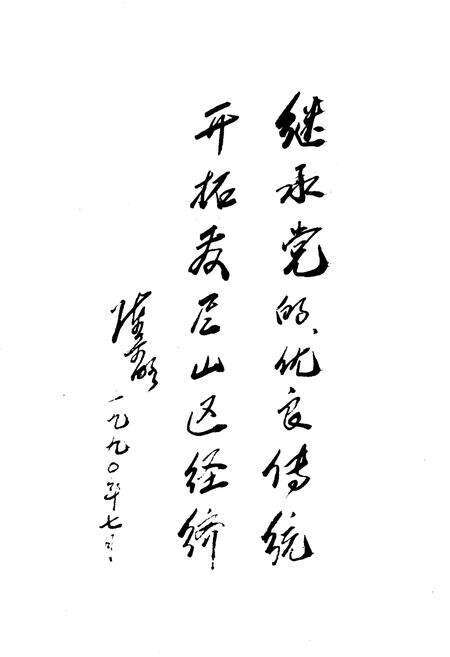 继承党的优良传统
开拓发展山区经济
一九九〇年七月